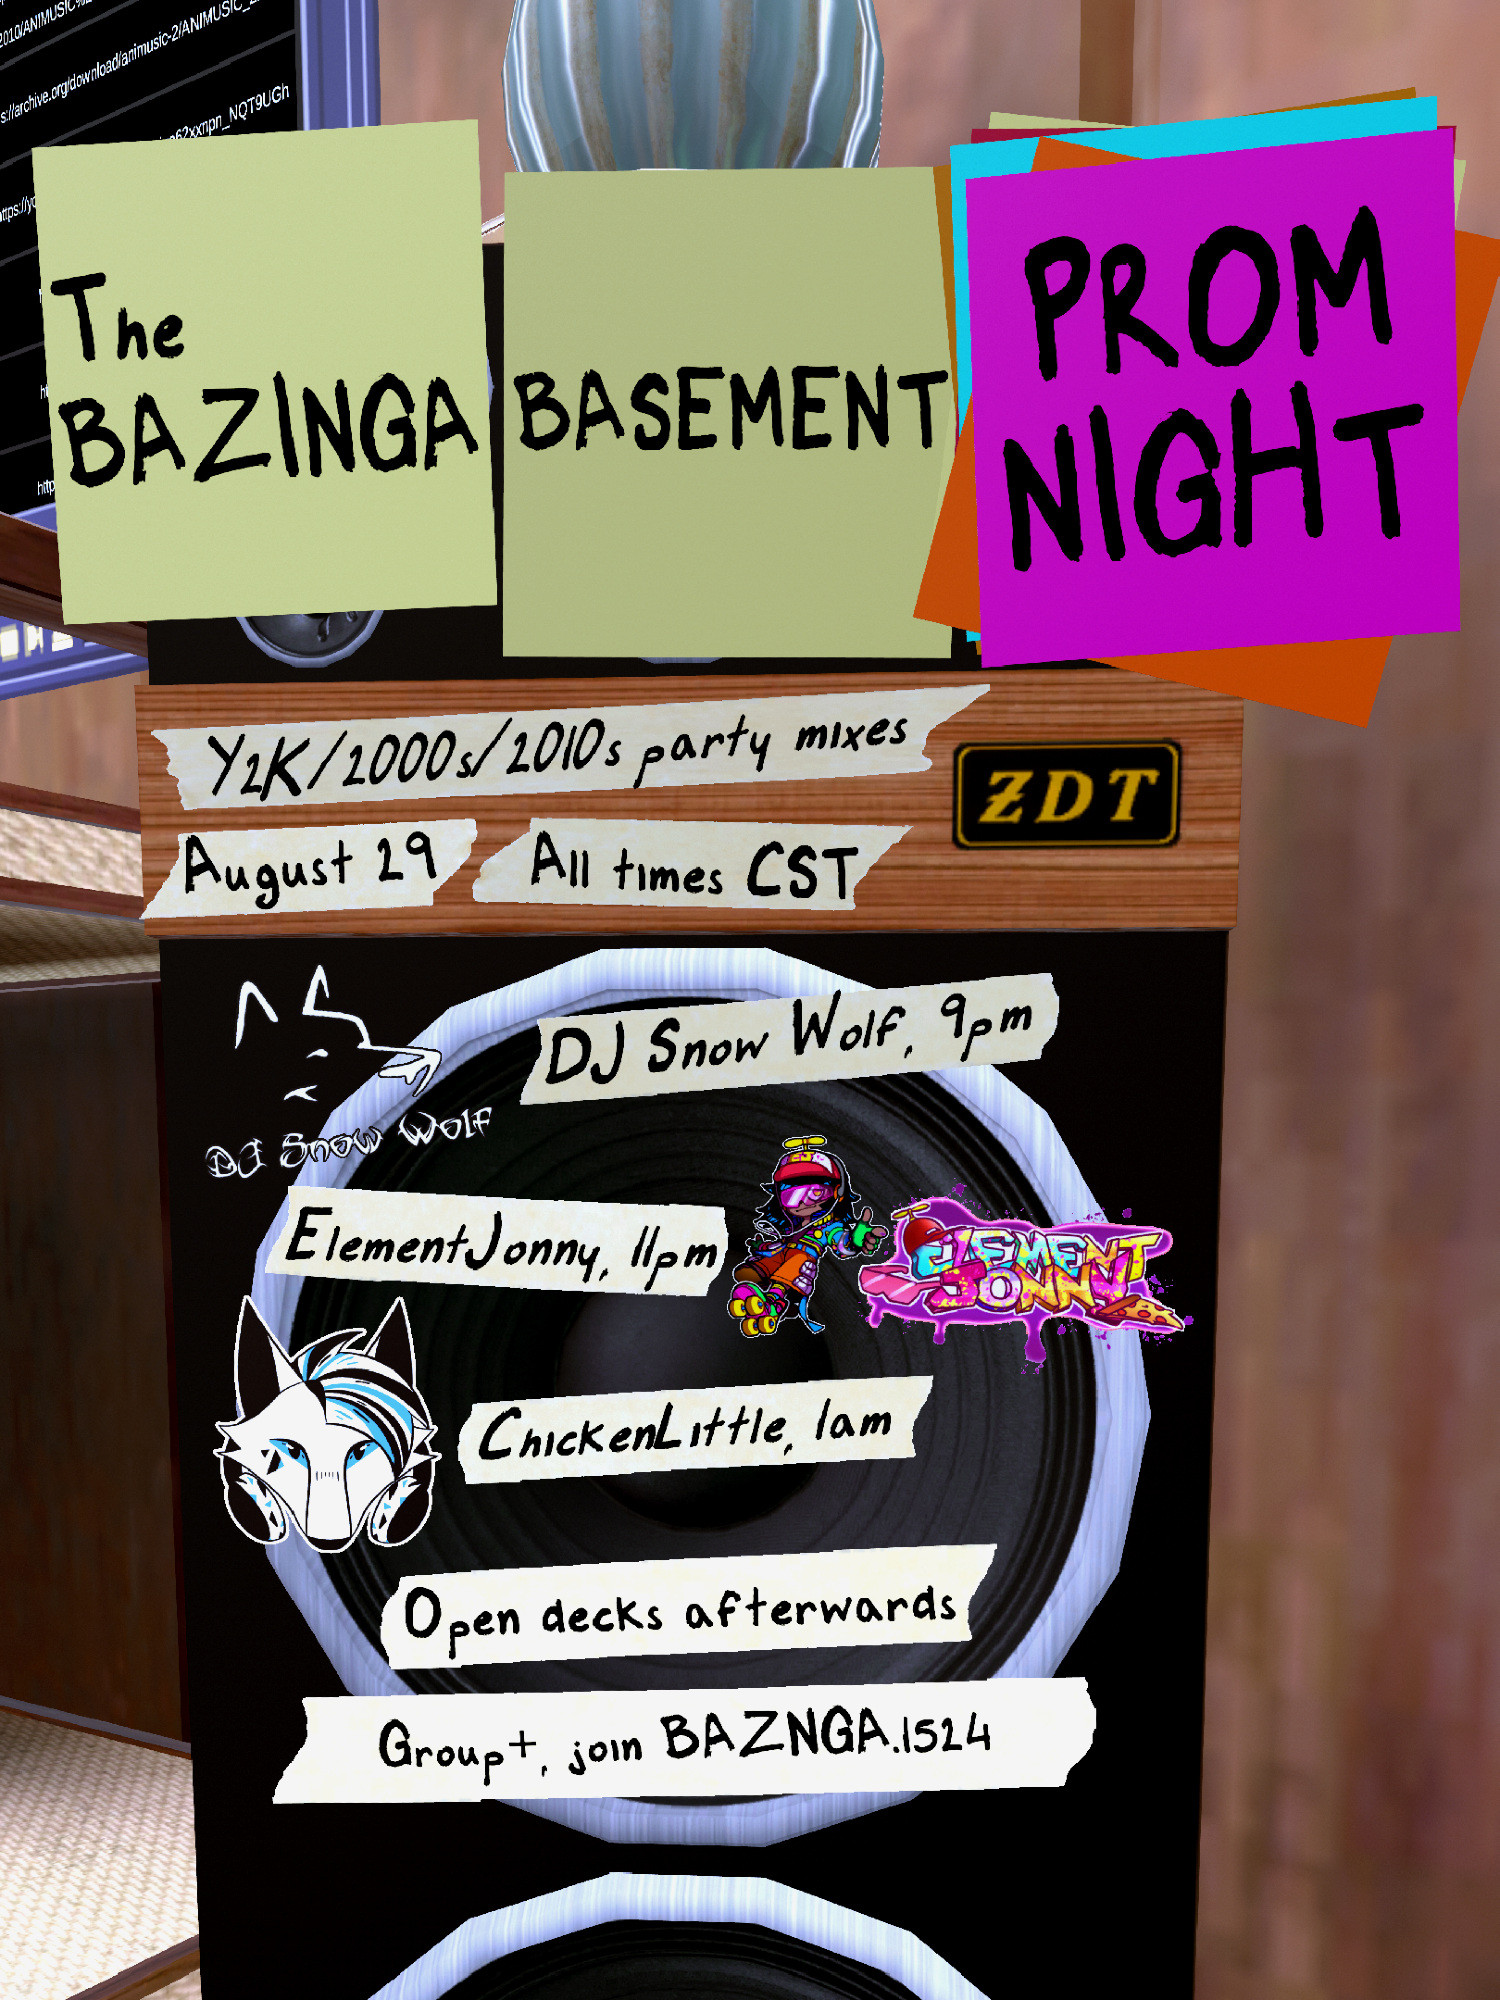 2010/ANIMUSIC%
s://archive.org/download/animusic-2/ANIMUSIC_2
62xxnpn_NQT9UGh
https://yo
The
BAZINGA
BASEMENT
PROM
NIGHT
Y2K/2000s/2010s party mixes
ZDT
August 29
All times CST
DJ Snow Wolf, 9pm
DJ Snow Wolf
ElementJonny, 11pm
EJ
ELEMENT
JONNY
ChickenLittle, 1am
Open decks afterwards
Group+, join BAZNGA.1524